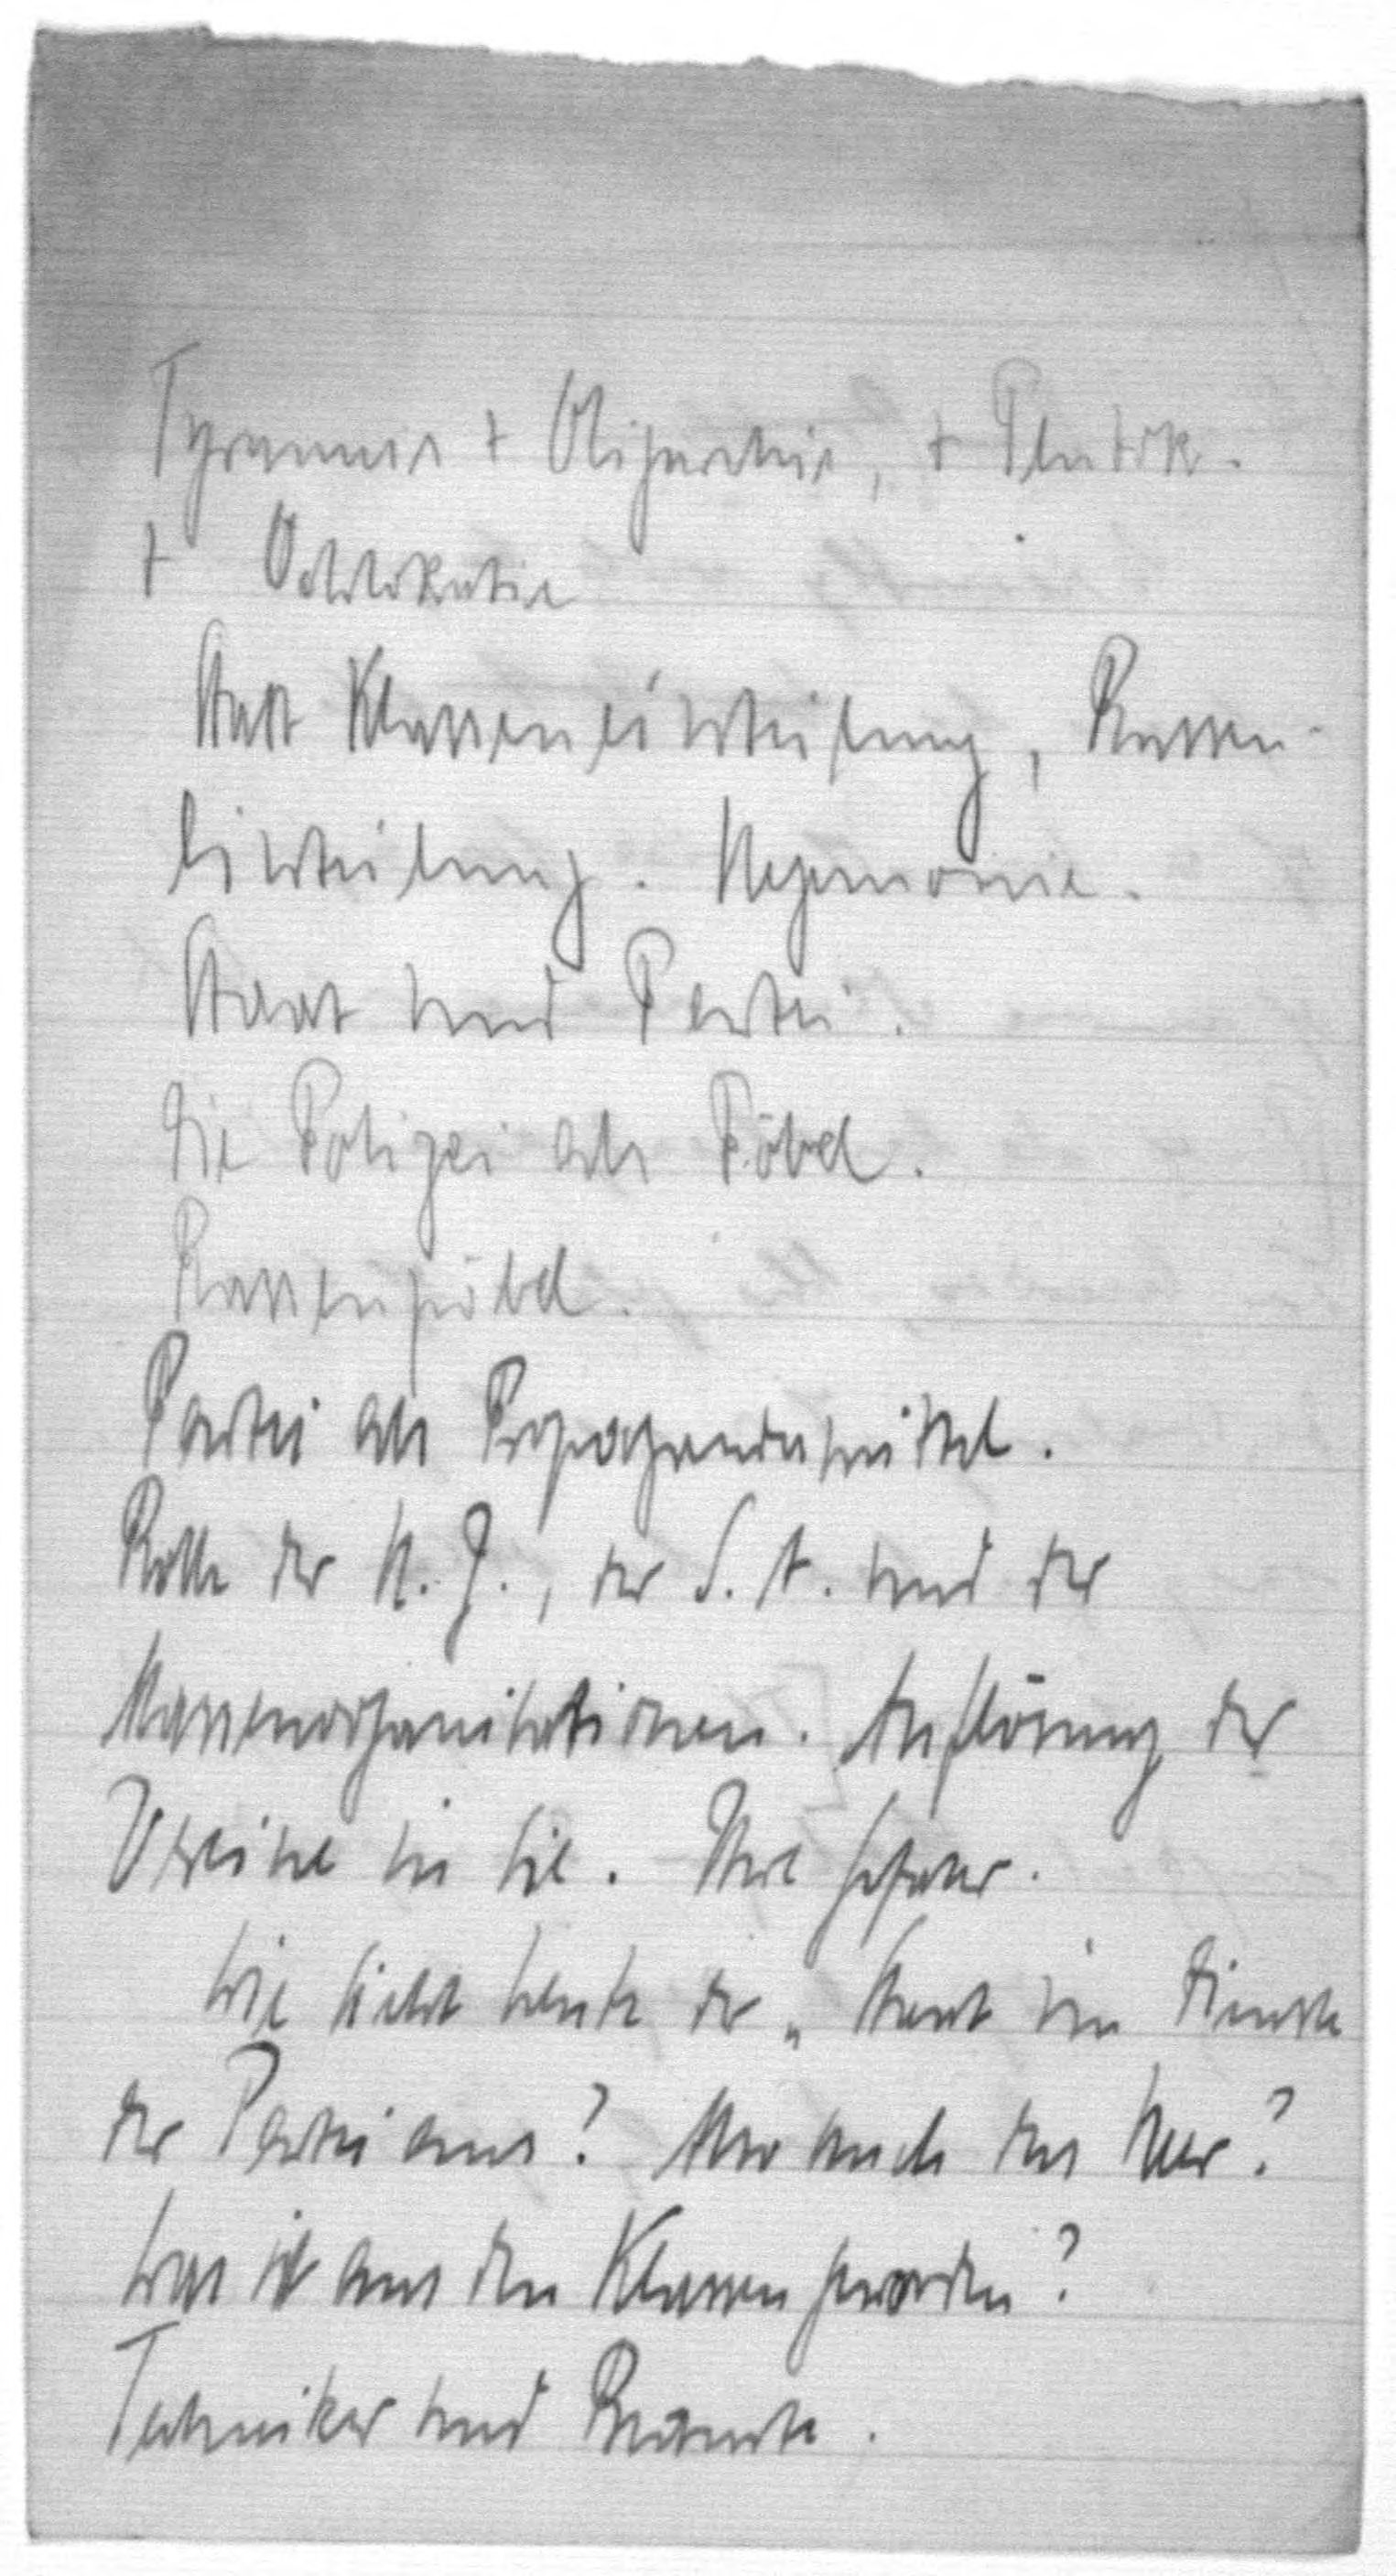 Tyrannis + Oligarchie, + Plutok.
+ Ochlokratie
Statt Klasseneinteilung, Rassen-
einteilung. Hegemonie.
Staat und Partei.
Die Polizei als Pöbel.
Rassenpöbel.
Partei als Propagandamittel.
Rolle der H. J., der S. A. und der
Massenorganisationen. Auflösung der
Vereine in sie. Ihre Gefahr.
Wie sieht heute der „Staat im Dienste
der Partei aus? Aber auch das Heer?
Was ist aus den Klassen geworden?
Techniker und Beamte.